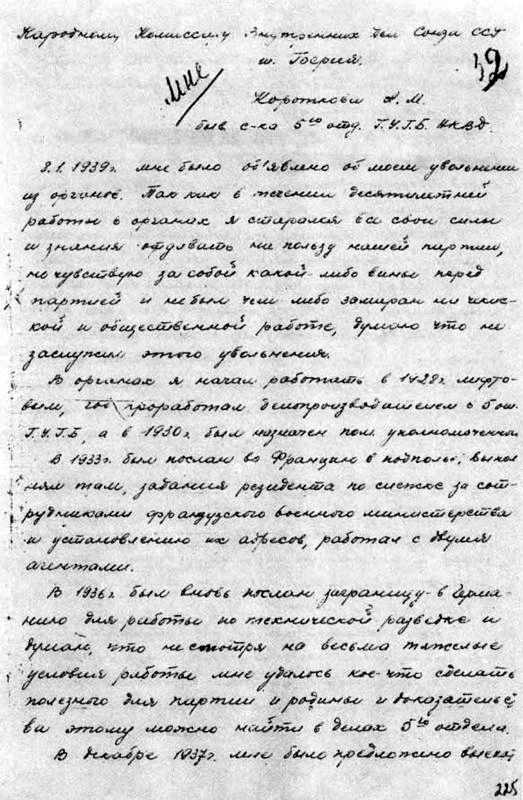 Народному Комиссару Внутренних дел Союза ССР
т. Берия.
52
мне
Короткова А. М.
быв с-ка 5го отд. Г.У.Г.Б. НКВД.
8.1.1939г. мне было об'явлено об моем увольнении
из органов. Так как в течении десятилетней
работы в органах я старался все свои силы
и знания отдавать на пользу нашей партии,
не чувствую за собой какой-либо вины перед
партией и не был чем либо замаран на чекис-
кой и общественной работе, думаю что не
заслужил этого увольнения.
В органах я начал работать в 1928г. лифто-
вым, проработал делопроизводителем с 5 от.
Г.У.Г.Б, а в 1930г. был назначен пом. уполномочен
В 1933г. был послан во Францию в подполье; выпол-
нял там, задания резидента по слежке за сот-
рудниками французского военного министерства
и установлению их адресов, работал с двумя
агентами.
В 1936г. был вновь послан заграницу-в Герма-
нию для работы по технической разведке и
думаю, что несмотря на весьма тяжелые
условия работы мне удалось кое-что сделать
полезного для партии и родины и доказательс
ва этому можно найти в делах 5го отдела.
В декабре 1937г. мне было предложено выехать
225